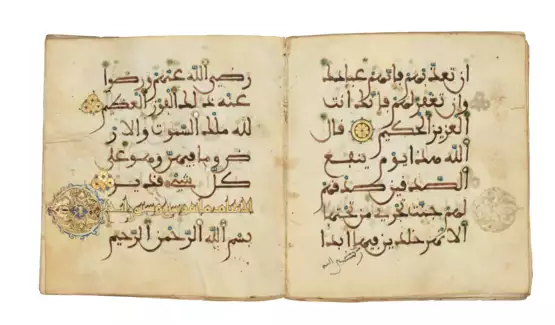 ان تعذبهم فإنهم عبادك
وإن تغفر لهم فإنك أنت
العزيز الحكيم قال
الله هذا يوم ينفع
الصدقين صدقهم
لهم جنت تجري من تحتها
الانهر خلدين فيها ابدا
رضي الله
رضي الله عنهم ورضوا
عنه ذلك الفوز العظيم
لله ملك السموت والار
ض وما فيهن وهو على
كل شيء قدير
بسم الله الرحمن الرحيم